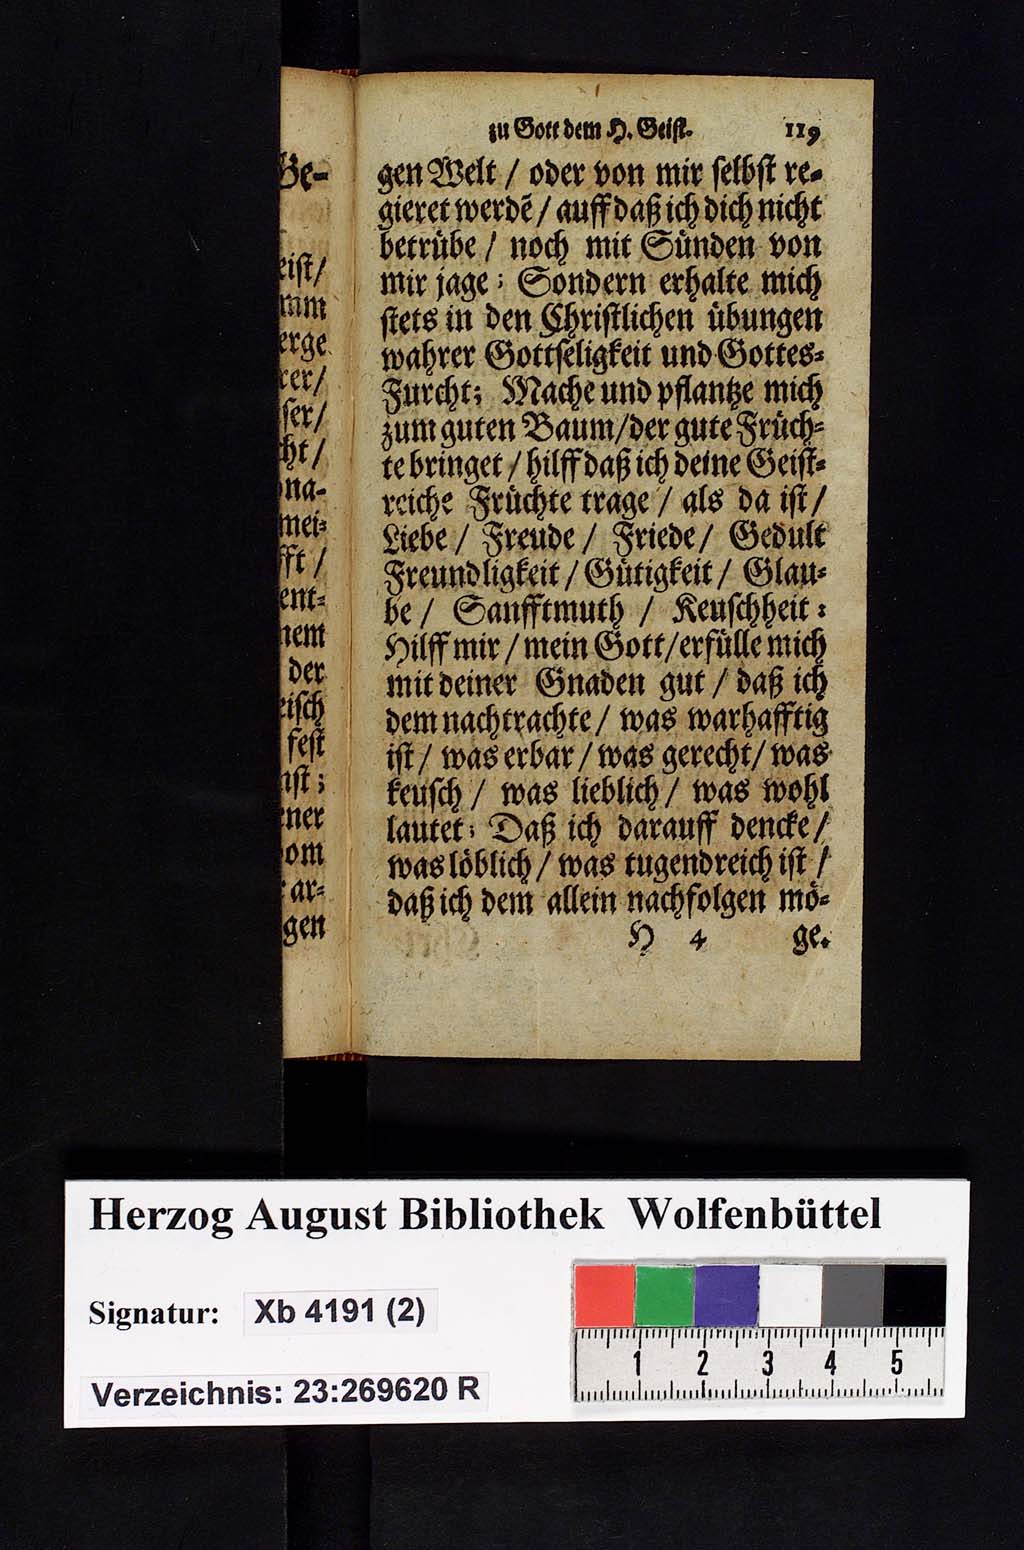 zu Gott dem H. Geist. 119
gen Welt / oder von mir selbst re-
gieret werdē / auff daß ich dich nicht
betrübe / noch mit Sünden von
mir jage; Sondern erhalte mich
stets in den Christlichen übungen
wahrer Gottseligkeit und Gottes-
Furcht; Mache und pflantze mich
zum guten Baum/der gute Früch-
te bringet / hilff daß ich deine Geist-
reiche Früchte trage / als da ist /
Liebe / Freude / Friede / Gedult
Freundligkeit / Gütigkeit / Glau-
be / Sanfftmuth / Keuschheit:
Hilff mir / mein Gott/erfülle mich
mit deiner Gnaden gut / daß ich
dem nachtrachte / was warhafftig
ist / was erbar / was gerecht/ was
keusch / was lieblich / was wohl
lautet; Daß ich darauff dencke /
was löblich / was tugendreich ist /
daß ich dem allein nachfolgen mö-
H 4 ge.
Ge-
eist/
mm
erge
rer/
ser/
cht/
ona-
mei-
fft /
ent-
nem
der
eisch
fest
nst;
ener
vom
ar-
gen
Herzog August Bibliothek Wolfenbüttel
Signatur: Xb 4191 (2)
Verzeichnis: 23:269620 R
1 2 3 4 5